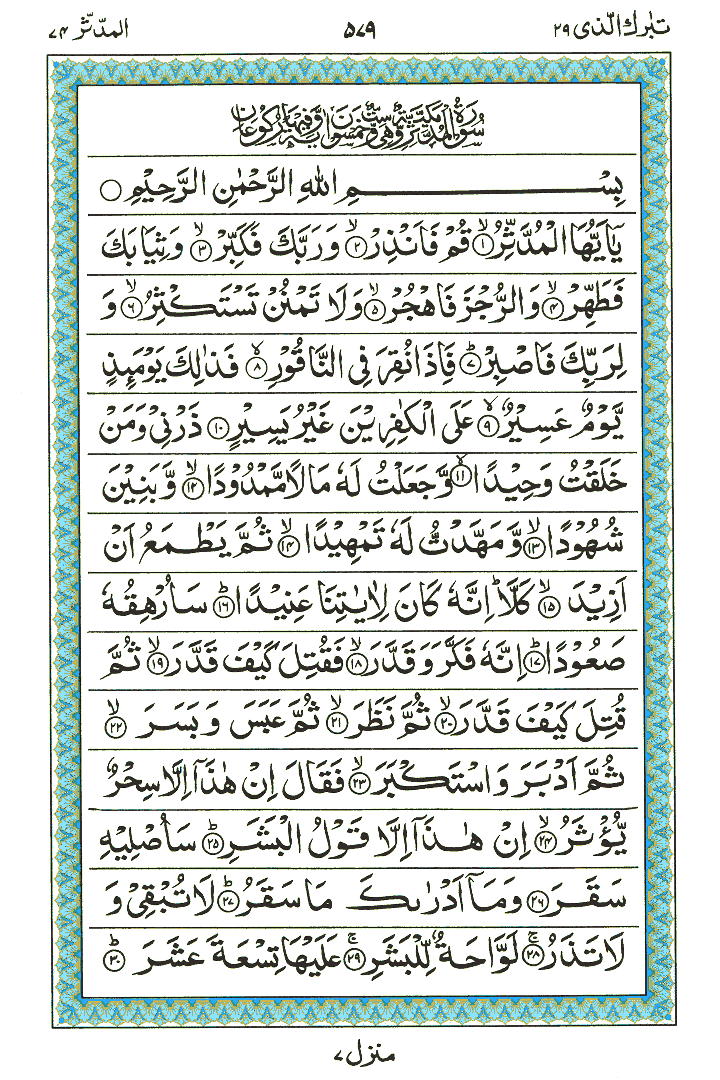 تبٰرك الّذى ٢٩
٥٧٩
المدّثّر ٧٤
سُوْرَةُ الْمُدَّثِّرِ مَكِّيَّةٌ وَّهِيَ سِتٌّ وَّخَمْسُوْنَ اٰيَةً وَّفِيْهَا رُكُوْعَانِ
بِسْمِ اللهِ الرَّحْمٰنِ الرَّحِيْمِ ○
يٰۤاَيُّهَا الْمُدَّثِّرُ ۙ﴿١﴾ قُمْ فَاَنْذِرْ ۙ﴿٢﴾ وَرَبَّكَ فَكَبِّرْ ۙ﴿٣﴾ وَثِيَابَكَ
فَطَهِّرْ ۙ﴿٤﴾ وَالرُّجْزَ فَاهْجُرْ ۙ﴿٥﴾ وَلَا تَمْنُنْ تَسْتَكْثِرُ ۙ﴿٦﴾ وَ
لِرَبِّكَ فَاصْبِرْ ؕ﴿٧﴾ فَاِذَا نُقِرَ فِى النَّاقُوْرِ ۙ﴿٨﴾ فَذٰلِكَ يَوْمَئِذٍ
يَّوْمٌ عَسِيْرٌ ۙ﴿٩﴾ عَلَى الْكٰفِرِيْنَ غَيْرُ يَسِيْرٍ ﴿١٠﴾ ذَرْنِىْ وَمَنْ
خَلَقْتُ وَحِيْدًا ۙ﴿١١﴾ وَّجَعَلْتُ لَهٗ مَالًا مَّمْدُوْدًا ۙ﴿١٢﴾ وَّبَنِيْنَ
شُهُوْدًا ۙ﴿١٣﴾ وَّمَهَّدْتُّ لَهٗ تَمْهِيْدًا ۙ﴿١٤﴾ ثُمَّ يَطْمَعُ اَنْ
اَزِيْدَ ۙ﴿١٥﴾ كَلَّا ؕ اِنَّهٗ كَانَ لِاٰيٰتِنَا عَنِيْدًا ؕ﴿١٦﴾ سَاُرْهِقُهٗ
صَعُوْدًا ؕ﴿١٧﴾ اِنَّهٗ فَكَّرَ وَقَدَّرَ ۙ﴿١٨﴾ فَقُتِلَ كَيْفَ قَدَّرَ ۙ﴿١٩﴾ ثُمَّ
قُتِلَ كَيْفَ قَدَّرَ ۙ﴿٢٠﴾ ثُمَّ نَظَرَ ۙ﴿٢١﴾ ثُمَّ عَبَسَ وَبَسَرَ ۙ﴿٢٢﴾
ثُمَّ اَدْبَرَ وَاسْتَكْبَرَ ۙ﴿٢٣﴾ فَقَالَ اِنْ هٰذَاۤ اِلَّا سِحْرٌ
يُّؤْثَرُ ۙ﴿٢٤﴾ اِنْ هٰذَاۤ اِلَّا قَوْلُ الْبَشَرِ ؕ﴿٢٥﴾ سَاُصْلِيْهِ
سَقَرَ ﴿٢٦﴾ وَمَاۤ اَدْرٰىكَ مَا سَقَرُ ؕ﴿٢٧﴾ لَا تُبْقِىْ وَ
لَا تَذَرُ ۚ﴿٢٨﴾ لَوَّاحَةٌ لِّلْبَشَرِ ۚ﴿٢٩﴾ عَلَيْهَا تِسْعَةَ عَشَرَ ؕ﴿٣٠﴾
منزل ٧